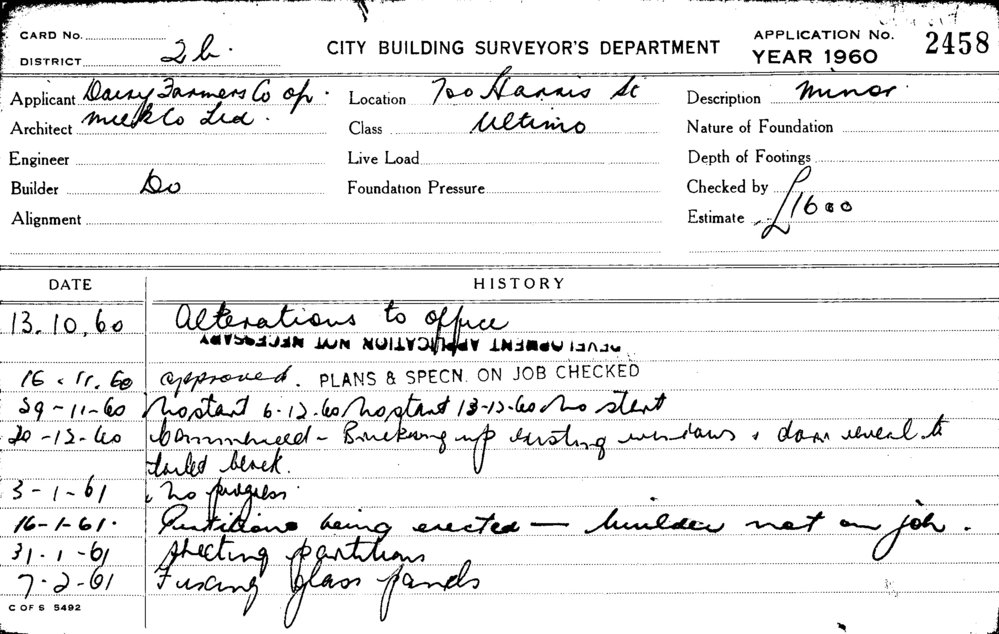 CARD No.
DISTRICT 2b.
CITY BUILDING SURVEYOR'S DEPARTMENT
APPLICATION No. 2458
YEAR 1960
Applicant Dairy Farmers Co op.
Location 700 Harris St
Description minor
Architect Milk Co Ltd.
Class Ultimo
Nature of Foundation
Engineer
Live Load
Depth of Footings
Builder Do
Foundation Pressure
Checked by
Alignment
Estimate £1600
DATE HISTORY
13.10.60 Alterations to office
DEVELOPMENT APPLICATION NOT NECESSARY
16.11.60 approved. PLANS & SPECN. ON JOB CHECKED
29-11-60 No start 6-12-60 No start 13-12-60 No start
20-12-60 Commenced - Bricking up existing windows & door reveal to
toilet block.
3-1-61 No progress
16-1-61. Partitions being erected — builder not on job.
31-1-61 Sheeting partitions
7-2-61 Fixing glass panels
C OF S 5492